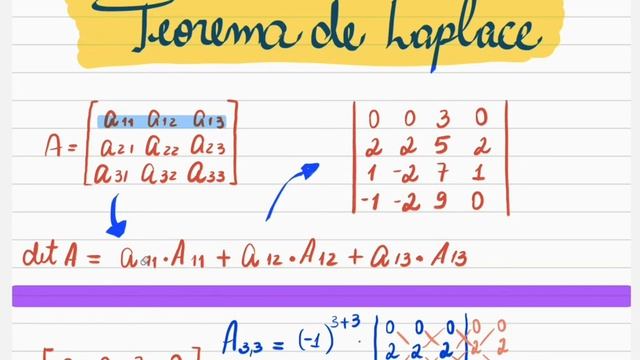 Teorema de Laplace
A = [ a11 a12 a13
a21 a22 a23
a31 a32 a33 ]
| 0 0 3 0 |
| 2 2 5 2 |
| 1 -2 7 1 |
| -1 -2 9 0 |
det A = a11 · A11 + a12 · A12 + a13 · A13
A3,3 = (-1)^3+3 · | 0 0 0 | 0 0
2 2 2 2 2